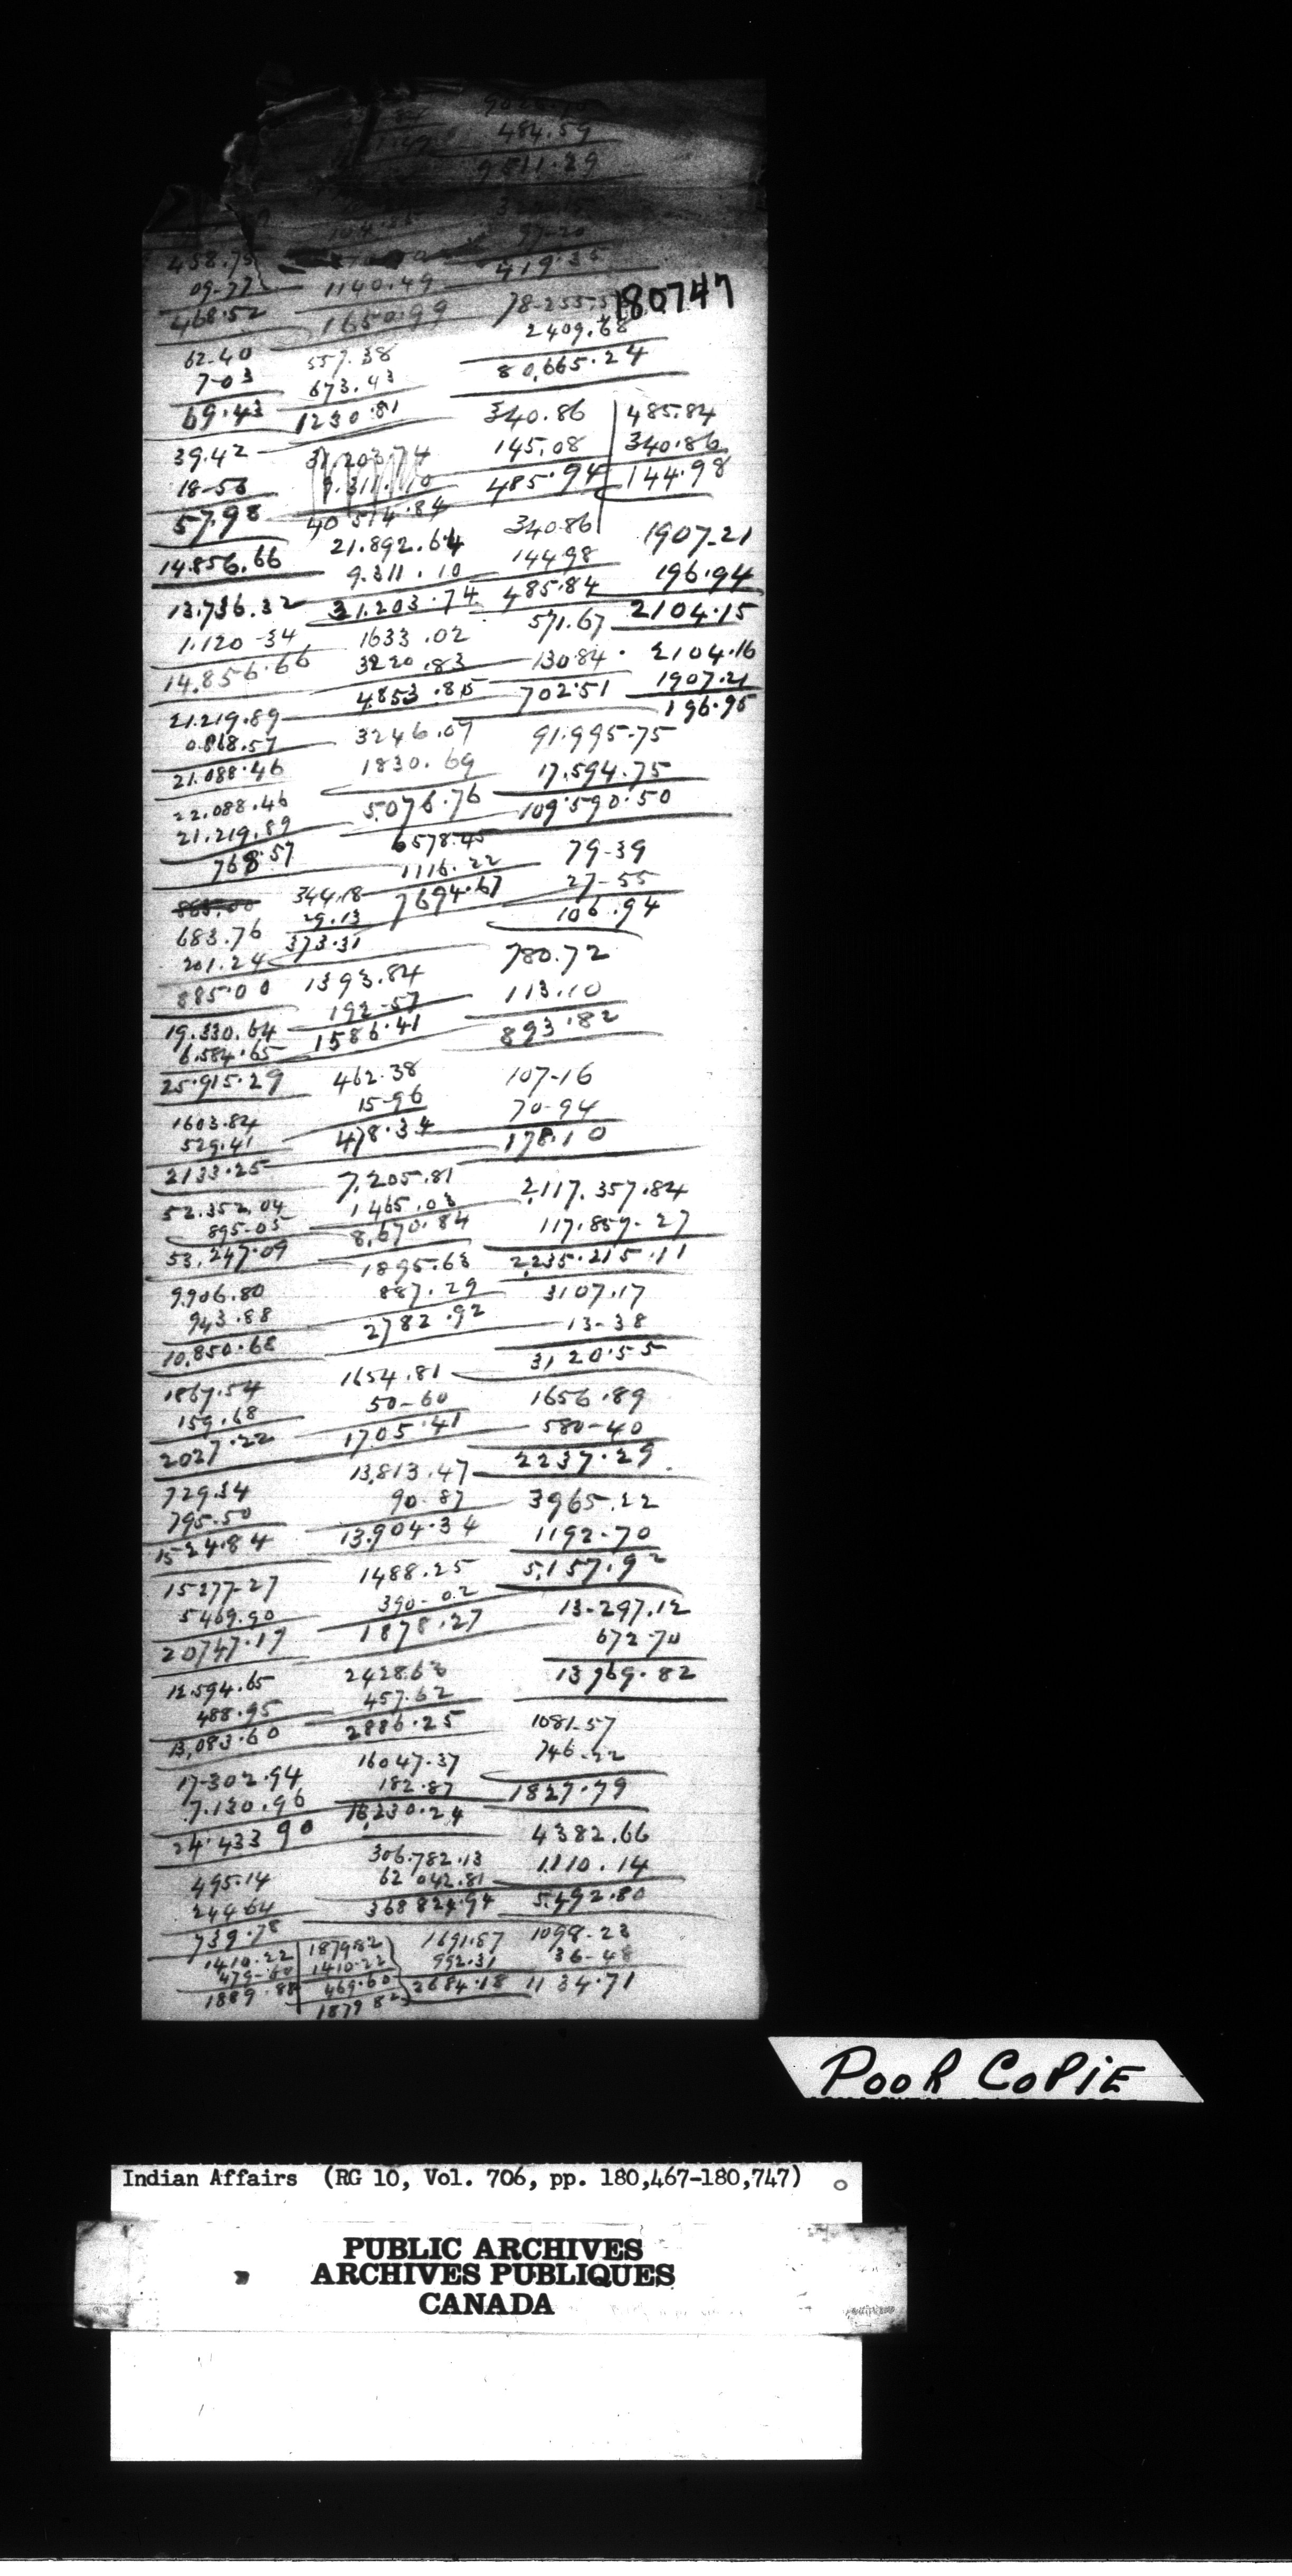 484.59
9511.29
97-20
458.75
419.35
09-77
1140.49
180747
468.52
1650.99
78-255.56
2409.68
62-40
557.38
80,665.24
7-03
673.43
69.43
1230.81
340.86
485.84
39.42
31,203.74
145.08
340.86
18-56
9.311.10
485.94
144.98
57.98
40 514.84
340.86
1907-21
14.856.66
21.892.64
144.98
196.94
9.311.10
485.84
2104.15
13.736.32
31.203.74
571.67
1.120-34
1633.02
130.84
2104.16
14.856.66
3220.83
702.51
1907.21
4853.85
196.95
21.219.89
3246.07
91.995-75
0.868.57
1830.69
17.594.75
21.088.46
5.076.76
109.590.50
22.088.46
6578.45
21.219.89
1116.22
79-39
768.57
7694.67
27-55
344.18
106.94
29.13
683.76
373.31
201.24
780.72
885.00
1393.84
113.10
192-57
893.82
19.330.64
1586.41
6.584.65
25.915.29
462.38
107-16
15-96
70-94
1603.84
478.34
178.10
529.41
2133.25
7,205.81
2,117.357.84
1465.03
117.857-27
52.352.04
8,670.84
2,235.215.11
895-05
53,247.09
1895.63
3107.17
887.29
13-38
9,906.80
2782.92
3,120.55
943.88
10,850.68
1654.81
1656.89
50-60
580-40
1867.54
1705.41
2237.29
159.68
2027.22
13,813.47
3965.22
90-87
1192-70
729.34
13.904.34
5,157.92
795-50
1524.84
1488.25
13-297.12
390-02
672-70
15277-27
1878.27
13 969.82
5469.90
20747.17
2428.63
457.62
1081-57
12.594.65
2886.25
746-22
488.95
1827.79
13,083.60
16047.37
182.87
4382.66
17-302.94
16,230.24
1,110.14
7.130.96
5,492.80
24.433 90
306.782.13
62 042.81
1098-23
495.14
368 824.94
36-48
244.64
1134.71
739.78
1410.22
1879.82
1691.87
479-60
1410.22
992.31
1889.82
469.60
2684.18
1879 82
POOR COPIE
Indian Affairs (RG 10, Vol. 706, pp. 180,467-180,747)
PUBLIC ARCHIVES
ARCHIVES PUBLIQUES
CANADA